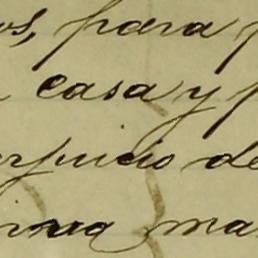 os, para p
casa y p
erjuicio de
ma